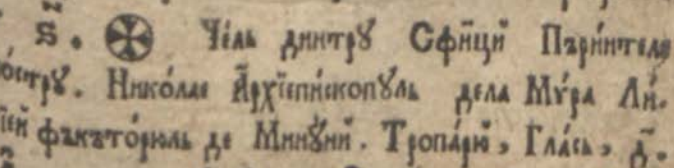 ѕ҃. ⊕ Чѣль динтрꙋ Сфи́нци Пъри́нтеле
но́стрꙋ. Никола́е А҆рхїепи́скопꙋль дела Му́ра Ли́-
їей фъкъто́рюль де Минꙋ́ни. Тропа́рю̆, Гла́сь, д҃.